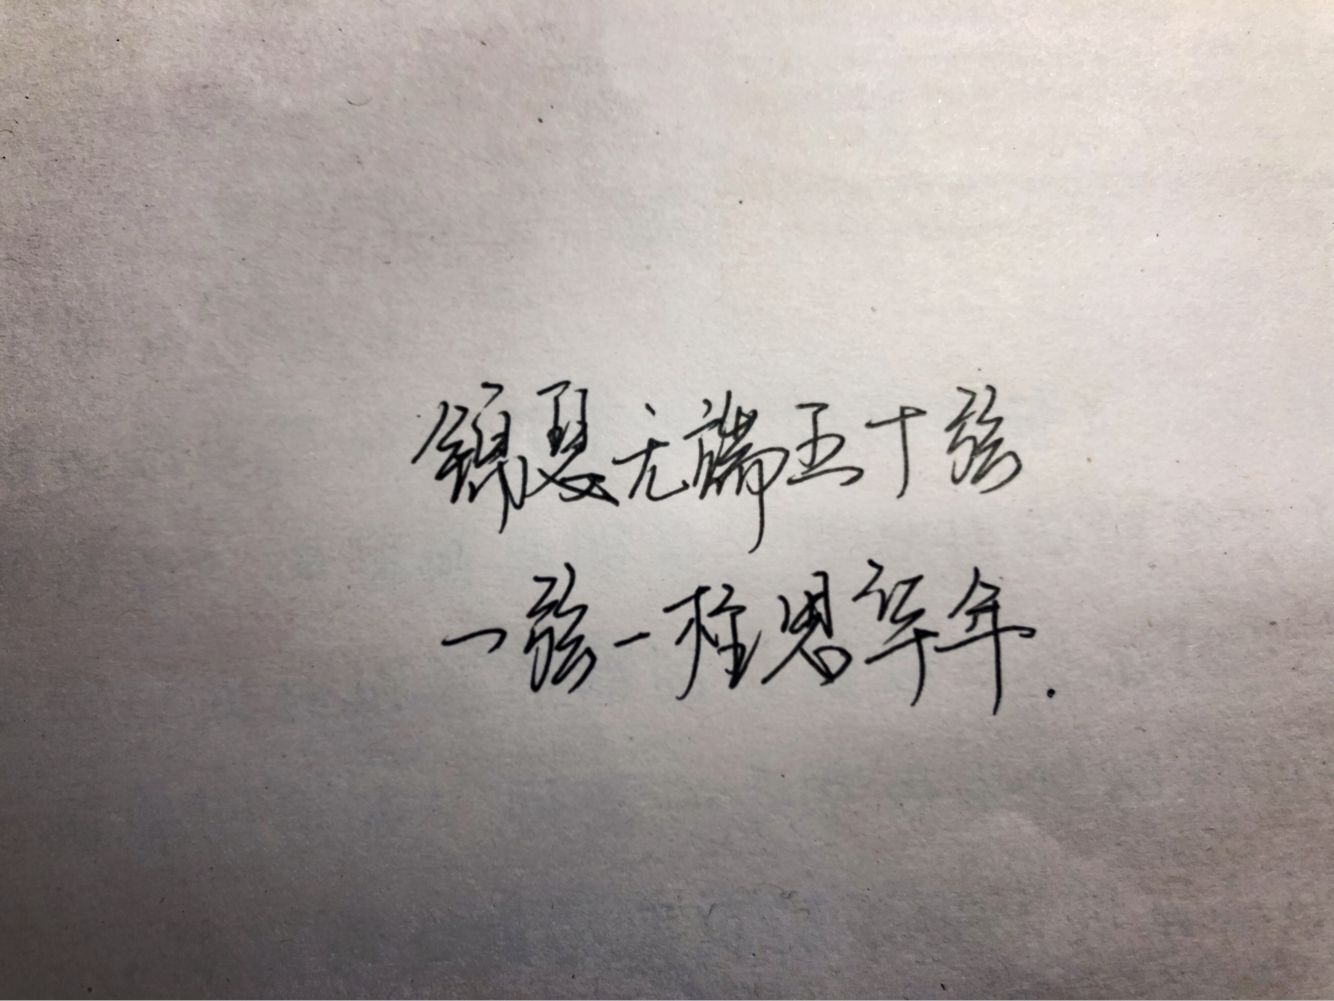 锦瑟无端五十弦
一弦一柱思华年.